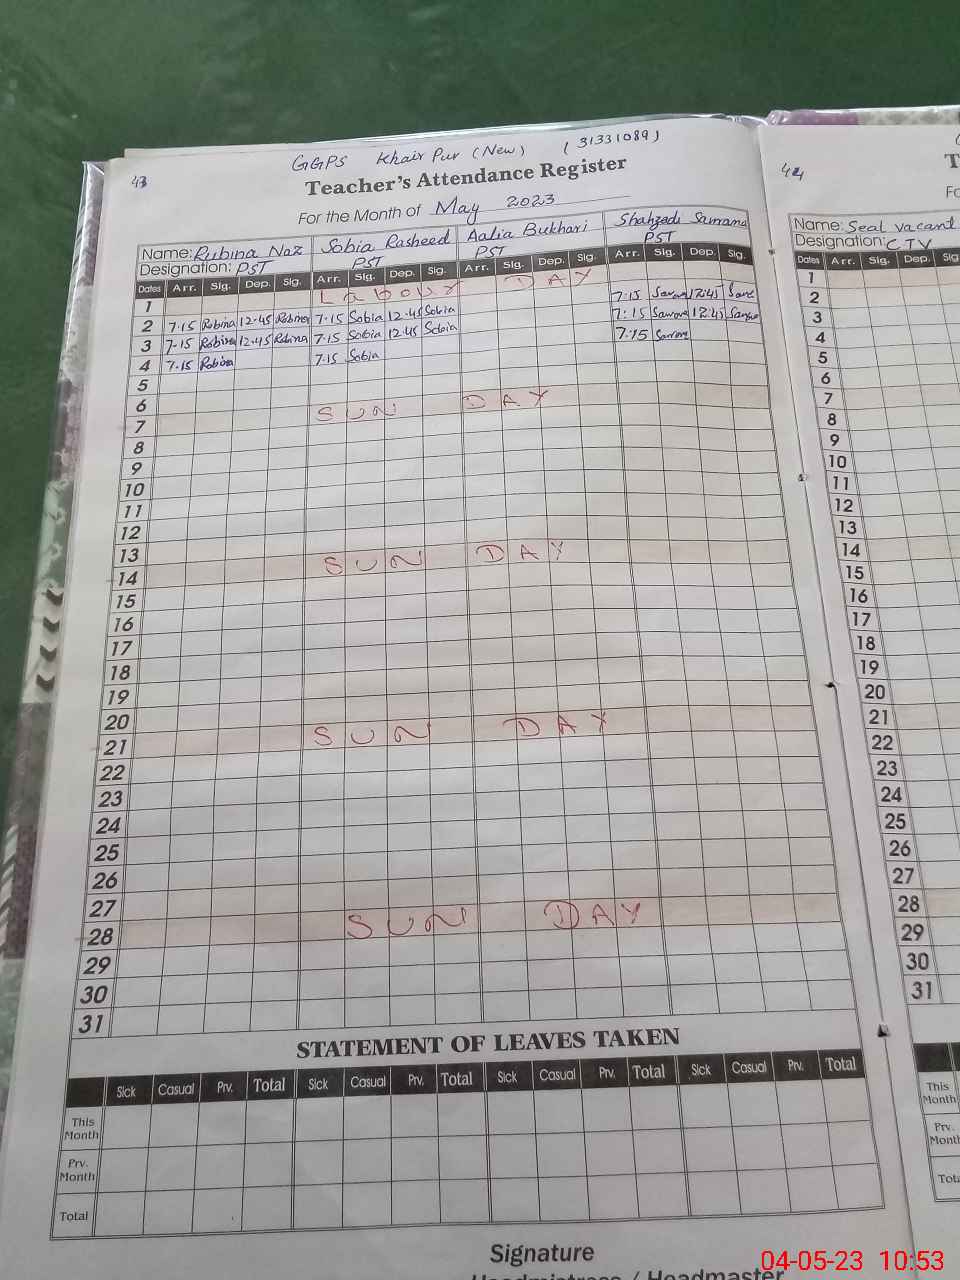 GGPS Khair Pur (New) (31331089)
43
Teacher's Attendance Register
For the Month of May 2023
Name: Rubina Naz Sobia Rasheed Aalia Bukhari Shahzadi Samana
Designation: PST PST PST PST
Dates Arr. Sig. Dep. Sig. Arr. Sig. Dep. Sig. Arr. Sig. Dep. Sig. Arr. Sig. Dep. Sig.
1 Labour DAY
2 7.15 Robina 12.45 Robina 7.15 Sobia 12.45 Sobia 7:15 12:45
3 7.15 Robina 12.45 Robina 7.15 Sobia 12.45 Sobia 7:15 12.45
4 7.15 Robina 7.15 Sobia 7.15
5
6
7 SUN DAY
8
9
10
11
12
13
14 SUN DAY
15
16
17
18
19
20
21 SUN DAY
22
23
24
25
26
27
28 SUN DAY
29
30
31
STATEMENT OF LEAVES TAKEN
Sick Casual Prv. Total Sick Casual Prv. Total Sick Casual Prv. Total Sick Casual Prv. Total
This Month
Prv. Month
Total
Signature
Headmistress / Headmaster
44
T
Name: Seat vacant
Designation: CTV
Dates Arr. Sig. Dep. Sig
1
2
3
4
5
6
7
8
9
10
11
12
13
14
15
16
17
18
19
20
21
22
23
24
25
26
27
28
29
30
31
This Month
Prv.
Month
04-05-23 10:53